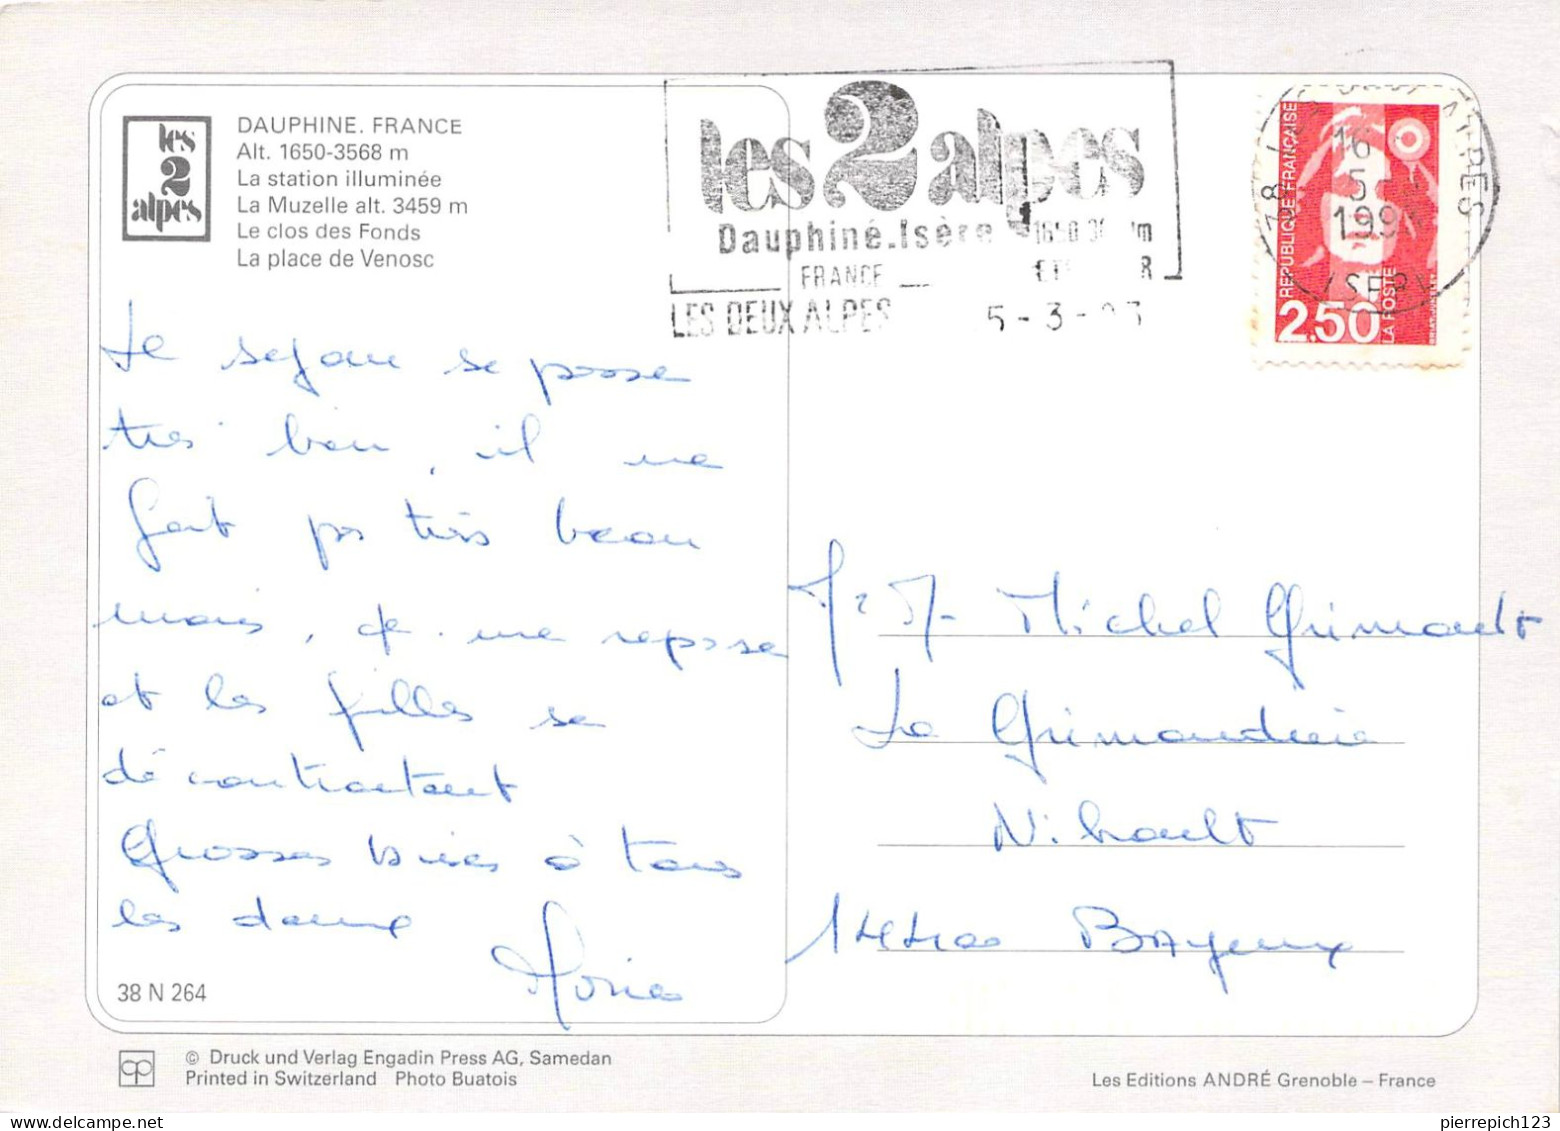 les
2
alpes
DAUPHINE. FRANCE
Alt. 1650-3568 m
La station illuminée
La Muzelle alt. 3459 m
Le clos des Fonds
La place de Venosc
les 2 alpes
Dauphiné.Isère
FRANCE
LES DEUX ALPES
5-3-
16
5
199
ISERE
REPUBLIQUE FRANÇAISE
LA POSTE
2.50
Le sejour se passe
très bien, il ne
fait pas très beau
mais, je me repose
et les filles se
décontractent
Grosses bises à tous
les deux
Mr Michel Grimault
La Grimaudière
14400 Bayeux
38 N 264
© Druck und Verlag Engadin Press AG, Samedan
Printed in Switzerland Photo Buatois
Les Editions ANDRÉ Grenoble – France
pierrepich123